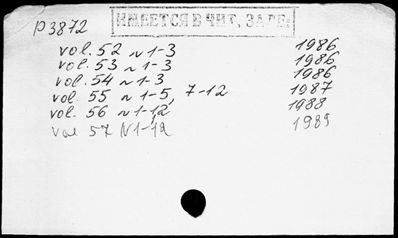 P3872
ИМЕЕТСЯ В ЧИТ. ЗАЛЕ
vol. 52 N 1-3 1986
vol. 53 N 1-3 1986
vol. 54 N 1-3 1986
vol. 55 N 1-5, 7-12 1987
vol. 56 N 1-12 1988
vol 57 N1-12 1989